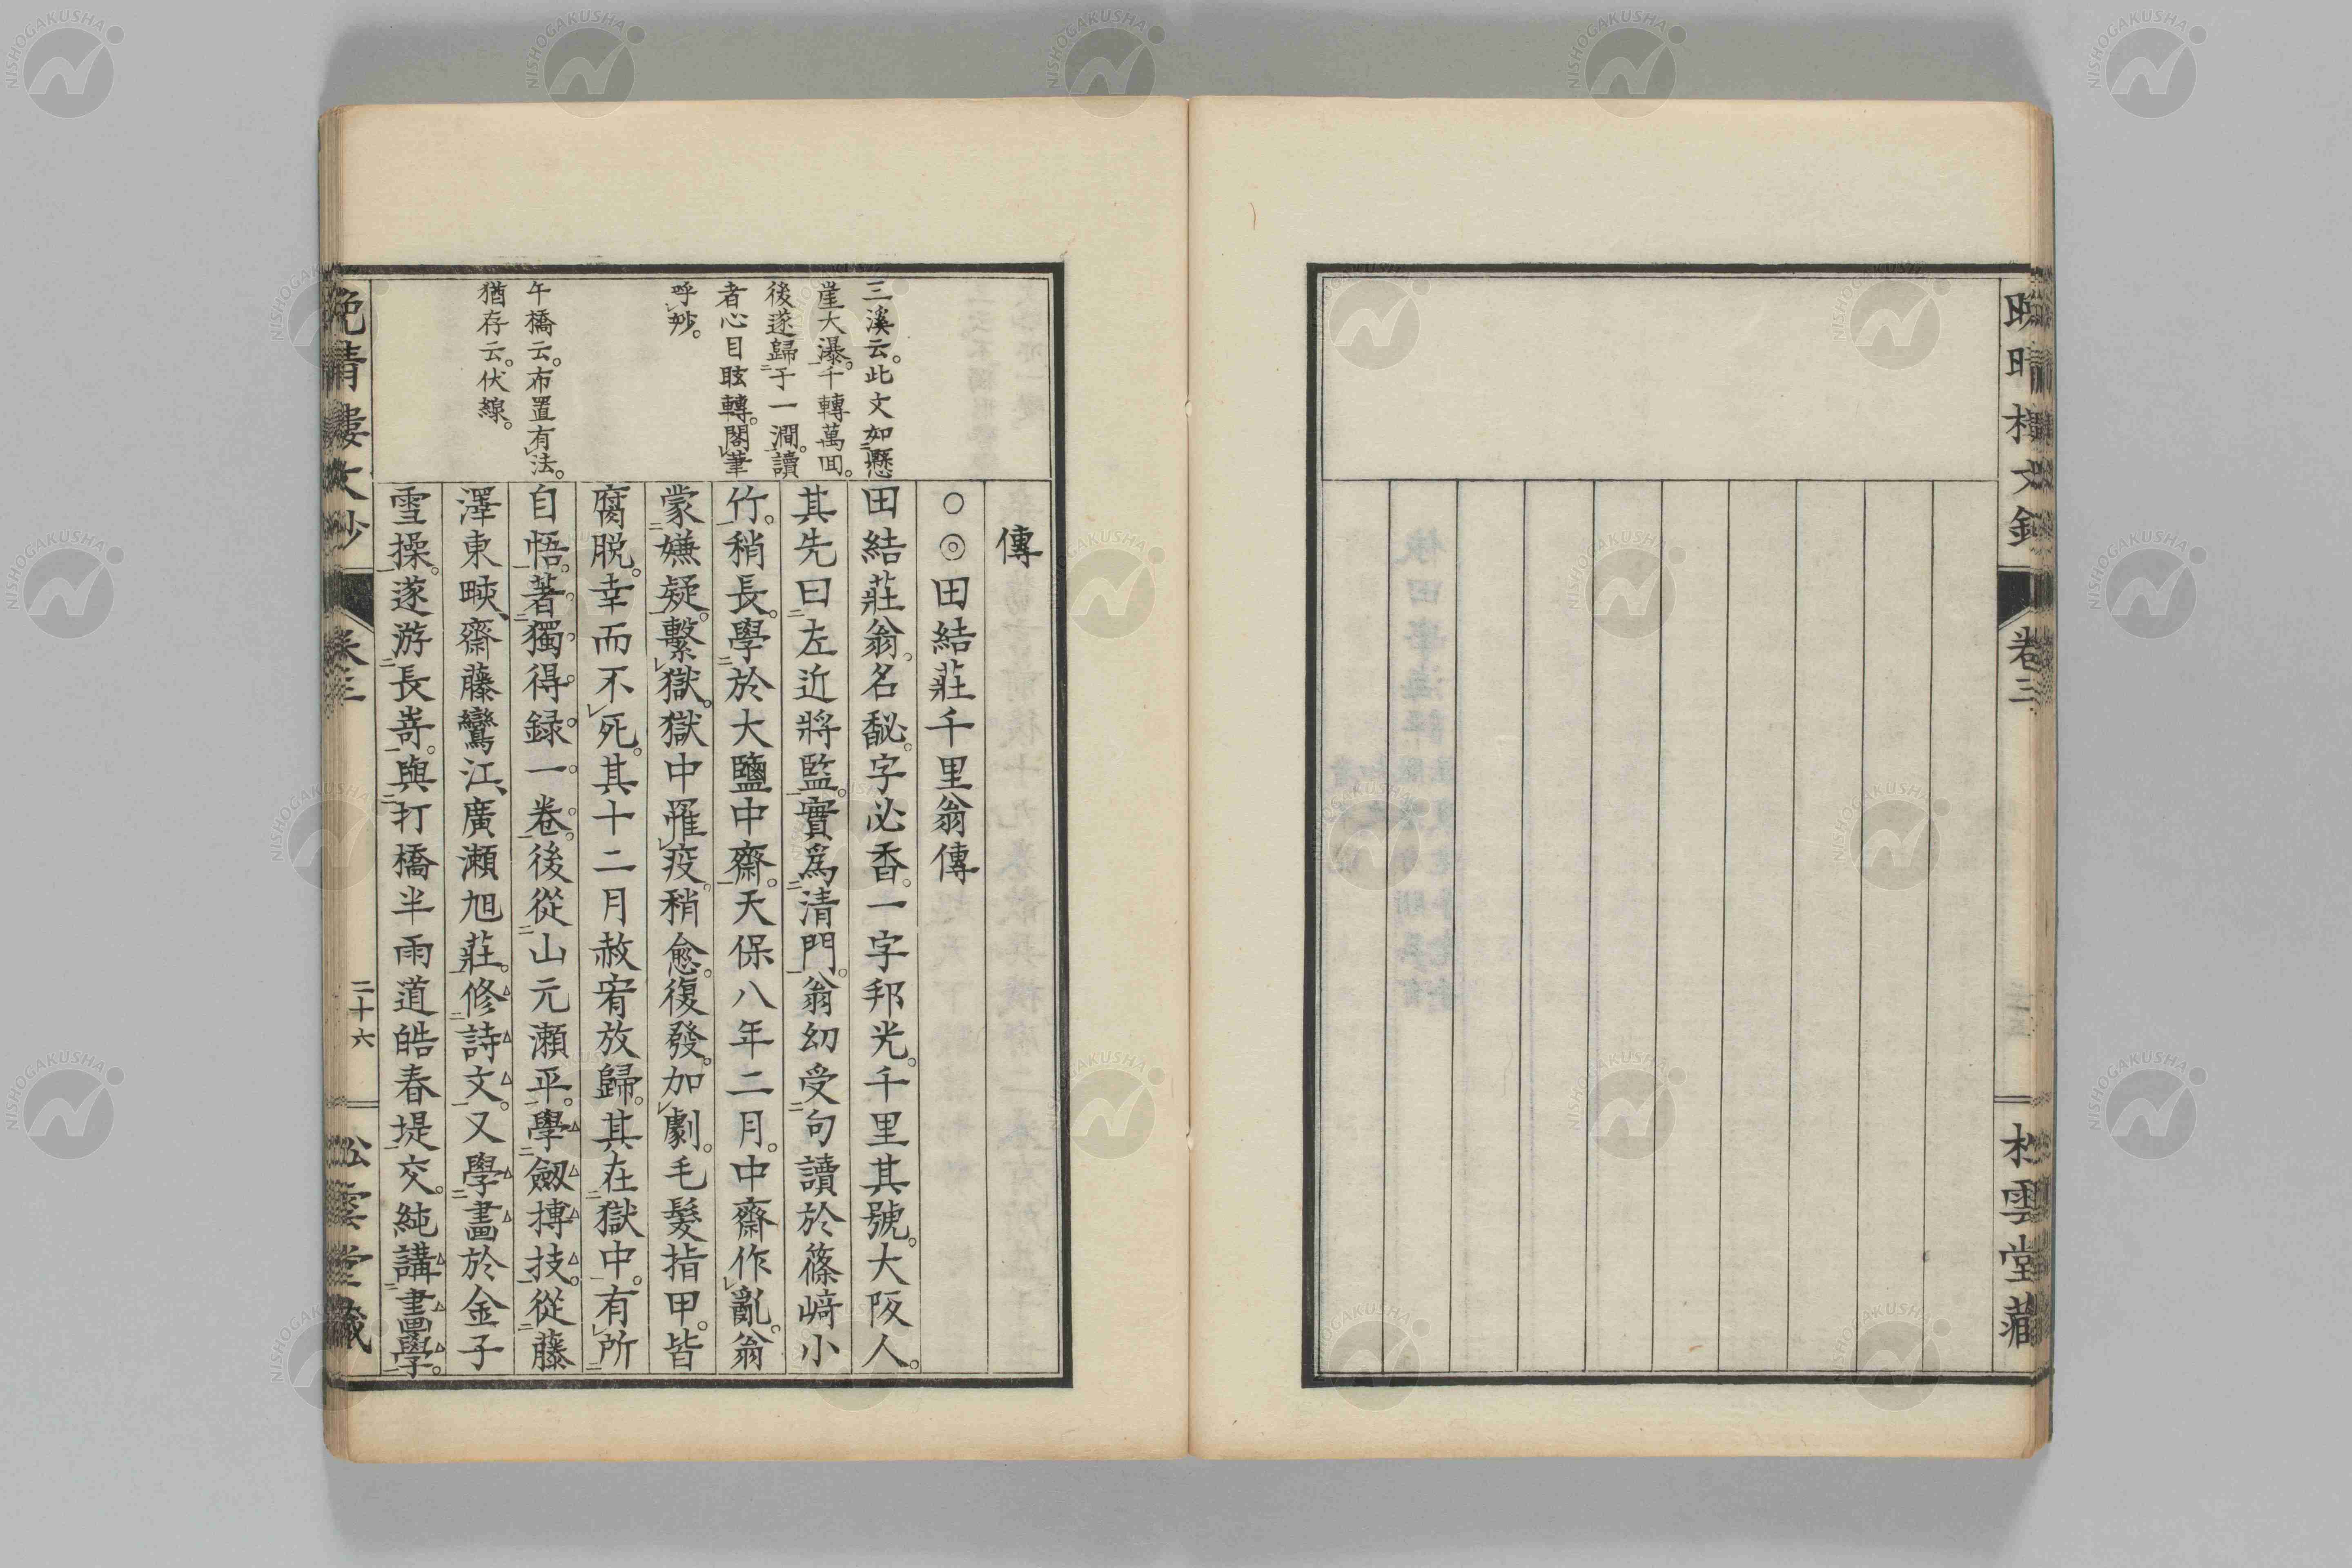 晩晴樓文鈔
卷三
松雲堂藏
傳
○◎田結莊千里翁傳
田結莊翁。名馝。字必香。一字邦光。千里其號。大阪人。
其先曰左近將監。實爲淸門。翁幼受句讀於篠﨑小
竹。稍長。學於大鹽中齋。天保八年二月。中齋作亂。翁
蒙嫌疑。繫獄。獄中罹疫。稍愈。復發。加劇。毛髮指甲。皆
腐脫。幸而不死。其十二月赦宥放歸。其在獄中。有所
自悟。著獨得録一卷。後從山元瀨平。學劔搏技。從藤
澤東畡、齋藤鸞江、廣瀨旭莊。修詩文。又學畫於金子
雪操。遂游長嵜。與打橋半雨道皓春堤交。純講畫學。
三溪云。此文如懸
崖大瀑。千轉萬回。
後遂歸于一澗。讀
者心目眩轉。閣筆
呼妙。
午橋云。布置有法。
猶存云。伏線。
晩晴樓文鈔
卷三
二十六
松雲堂藏
NISHOGAKUSHA